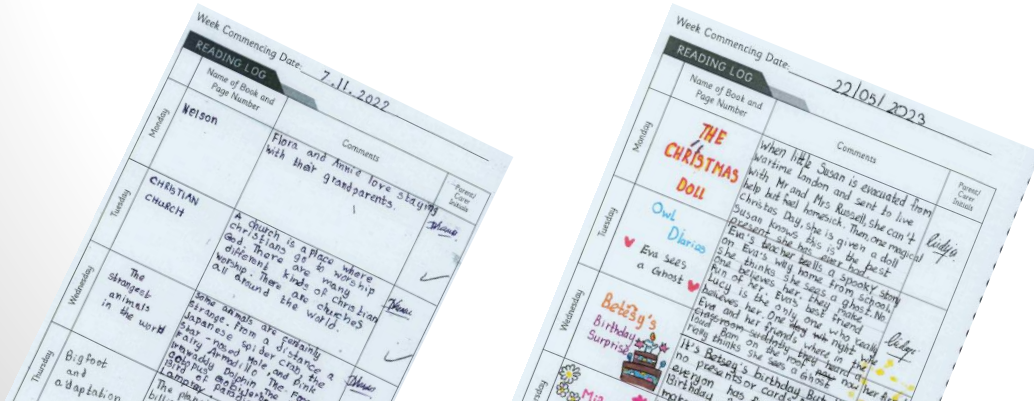 Week Commencing Date: 7.11.2022
READING LOG
Name of Book and
Page Number
Comments
Parent/
Carer
Initials
Monday
Nelson
Flora and Annie love staying
with their grandparents.
Tuesday
CHRISTIAN
CHURCH
A church is a place where
christians go to worship
God. There are many
different kinds of christian
worship. There are churches
all around the world.
Wednesday
The
strangest
animals
in the world
Some animals are certainly
strange. From a distance a
Japanese spider crab, the
star nosed Mole, and pink
fairy Armadillo, The
Irawaddy Dolphin, The
octopus
Lamprey
Thursday
Bigfoot
and
adaptation
The
Week Commencing Date: 22/05/2023
READING LOG
Name of Book and
Page Number
Comments
Parent/
Carer
Initials
Monday
THE
CHRISTMAS
DOLL
When little Susan is evacuated from
wartime London and sent to live
with Mr and Mrs Russell, she can't
help but feel homesick. Then one magical
Christas Day, she is given a doll
Susan knows this is the best
present she has ever had
Tuesday
Owl
Diaries
Eva sees
a Ghost
Eva's teacher tells a spooky story
on Eva's way home from school,
she thinks she sees a ghost. No
one believes her, they make
fun of her. Eva's best friend
Lucy is the only one who really
believes her. One night when
Eva and her friends where in the
classroom suddenly they heard a
said Bam on the roof
really thinks she saw a Ghost
Wednesday
Betsey's
Birthday
Surprise
It's Betsey's birthday. But
no presents or cards
everyon has
Birthday